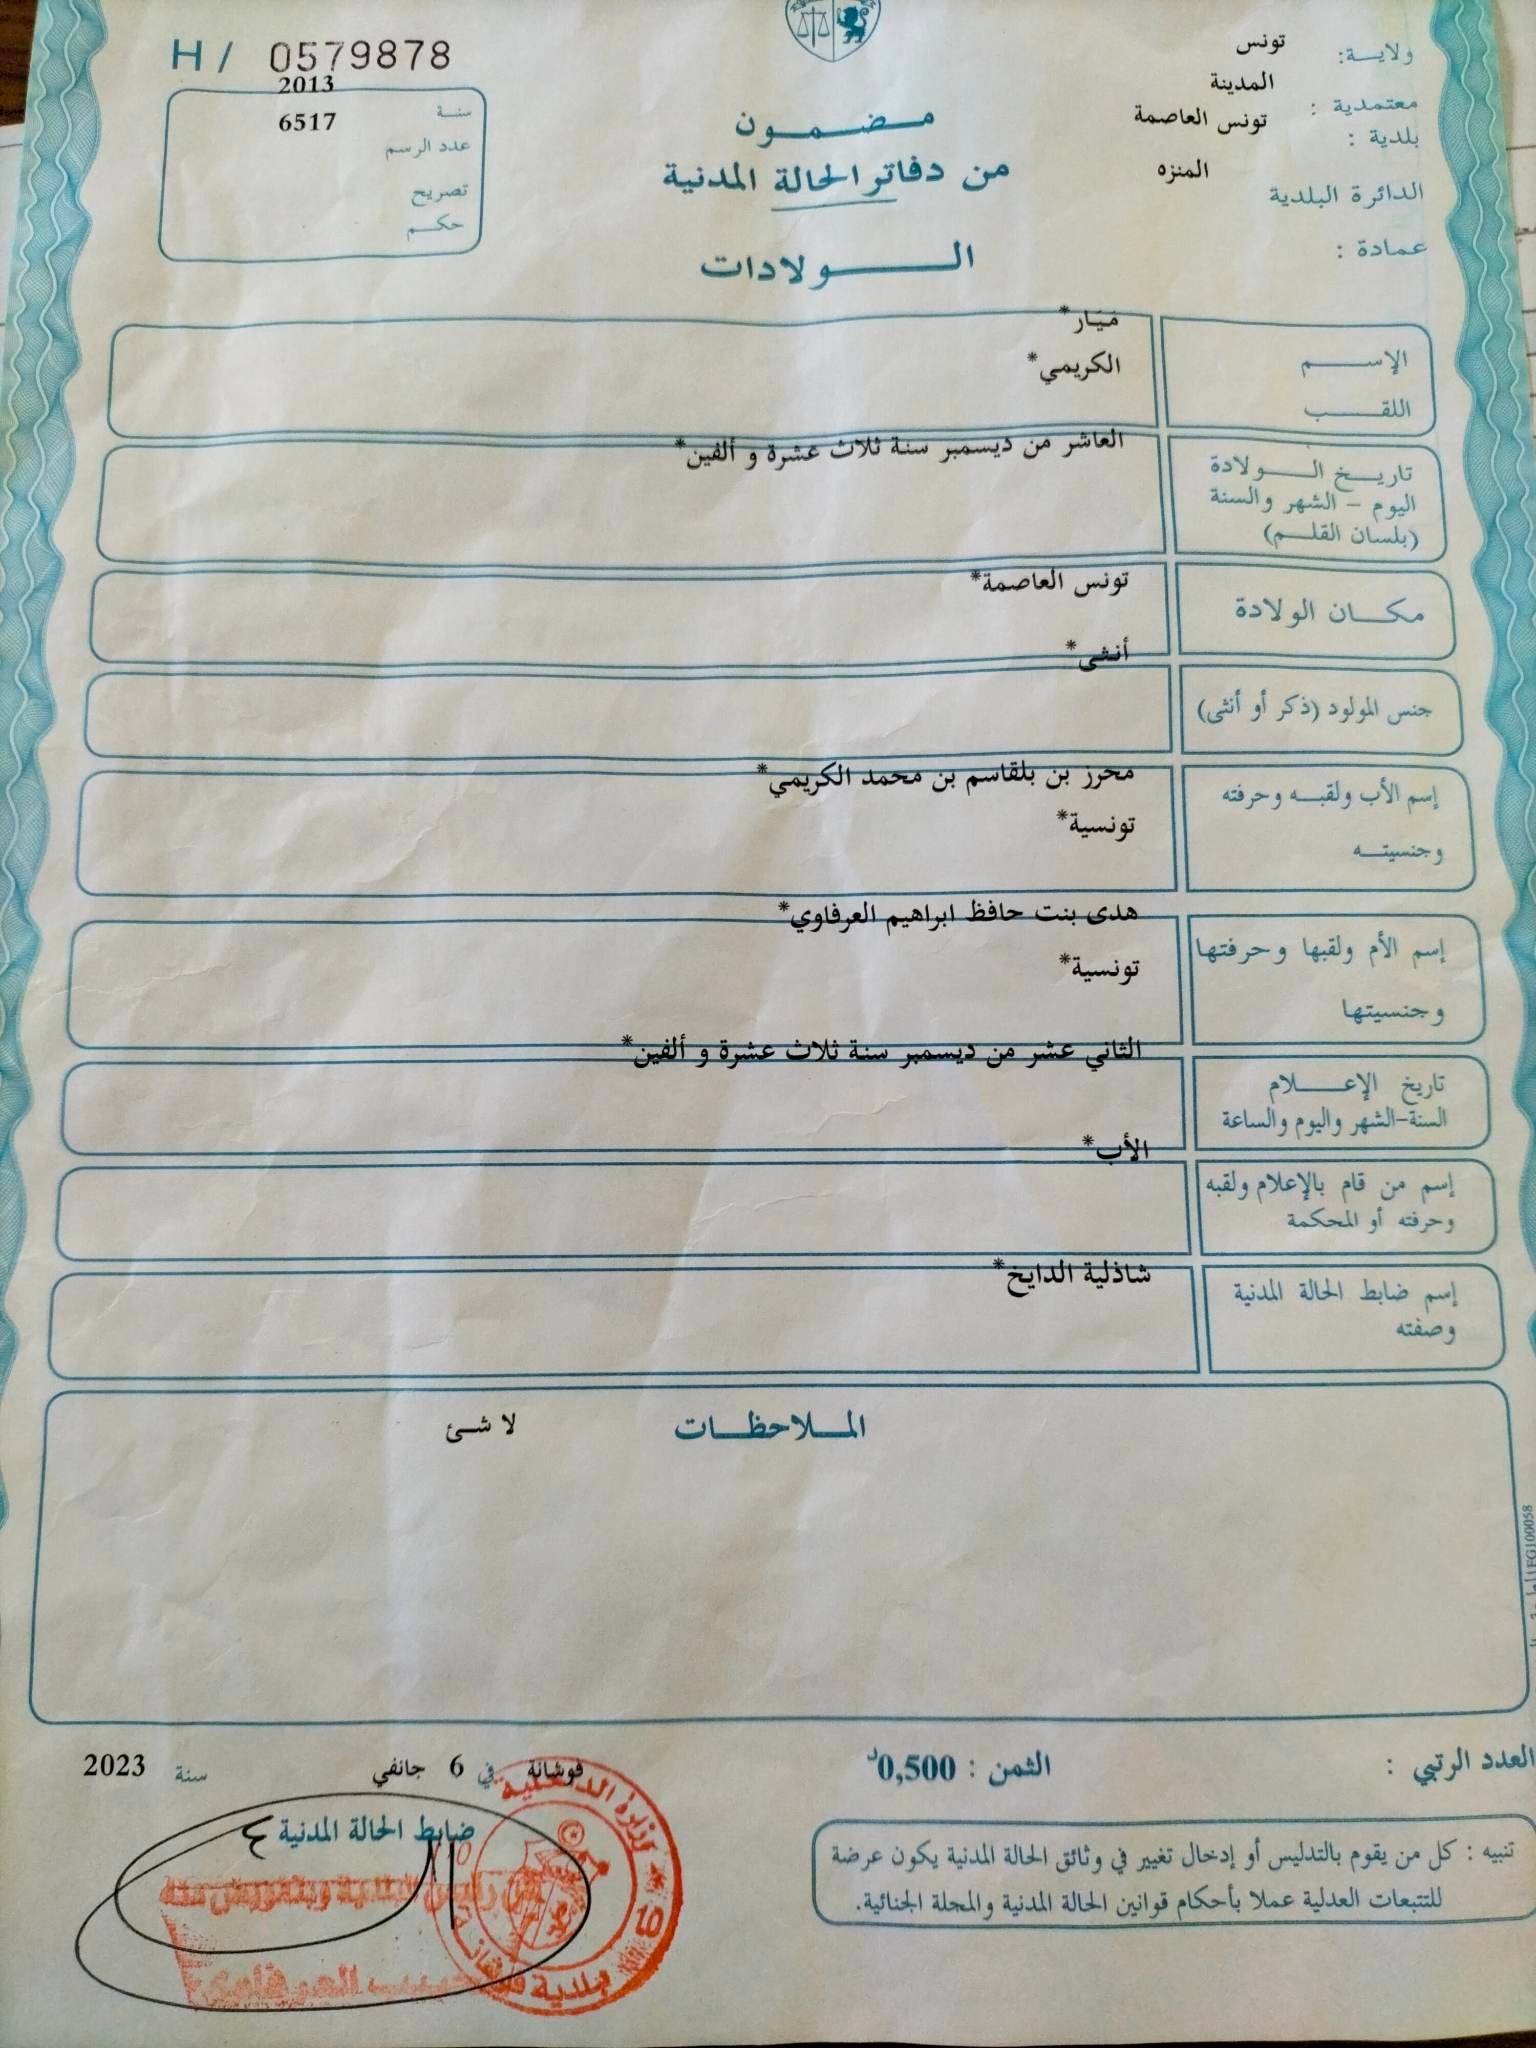 H / 0579878
ولاية: تونس
معتمدية : المدينة
بلدية : تونس العاصمة
الدائرة البلدية المنزه
عمادة :
مضمون
من دفاتر الحالة المدنية
الولادات
سنة 2013
عدد الرسم 6517
تصريح
حكم
الإسم مَيَار*
اللقب الكريمي*
تاريخ الولادة العاشر من ديسمبر سنة ثلاث عشرة و ألفين*
اليوم - الشهر والسنة
(بلسان القلم)
مكان الولادة تونس العاصمة*
جنس المولود (ذكر أو أنثى) أنثى*
إسم الأب ولقبه وحرفته محرز بن بلقاسم بن محمد الكريمي*
وجنسيته تونسية*
إسم الأم ولقبها وحرفتها هدى بنت حافظ ابراهيم العرفاوي*
وجنسيتها تونسية*
تاريخ الإعلام الثاني عشر من ديسمبر سنة ثلاث عشرة و ألفين*
السنة-الشهر واليوم والساعة
إسم من قام بالإعلام ولقبه الأب*
وحرفته أو المحكمة
إسم ضابط الحالة المدنية شاذلية الدايخ*
وصفته
الملاحظات لا شئ
العدد الرتبي :
الثمن : 0,500د
فوشانة في 6 جانفي سنة 2023
ضابط الحالة المدنية
تنبيه : كل من يقوم بالتدليس أو إدخال تغيير في وثائق الحالة المدنية يكون عرضة
للتتبعات العدلية عملا بأحكام قوانين الحالة المدنية والمجلة الجنائية.
وزارة الداخلية
10
بلدية فوشانة
عن رئيس البلدية وبتفويض منه
العرفاوي